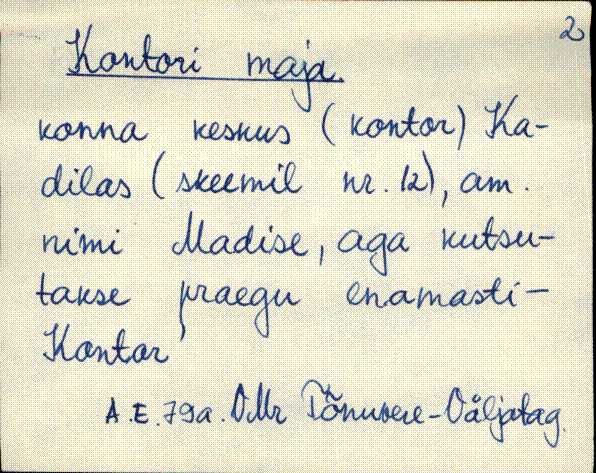 2
Kontori maja.
konna keskus (kontor) Ka-
dilas (skeemil nr. 12), am.
nimi Madise, aga kutsu-
takse praegu enamasti-
Kontor
A.E. 79a. VMr Tõnuvere-Väljatag.